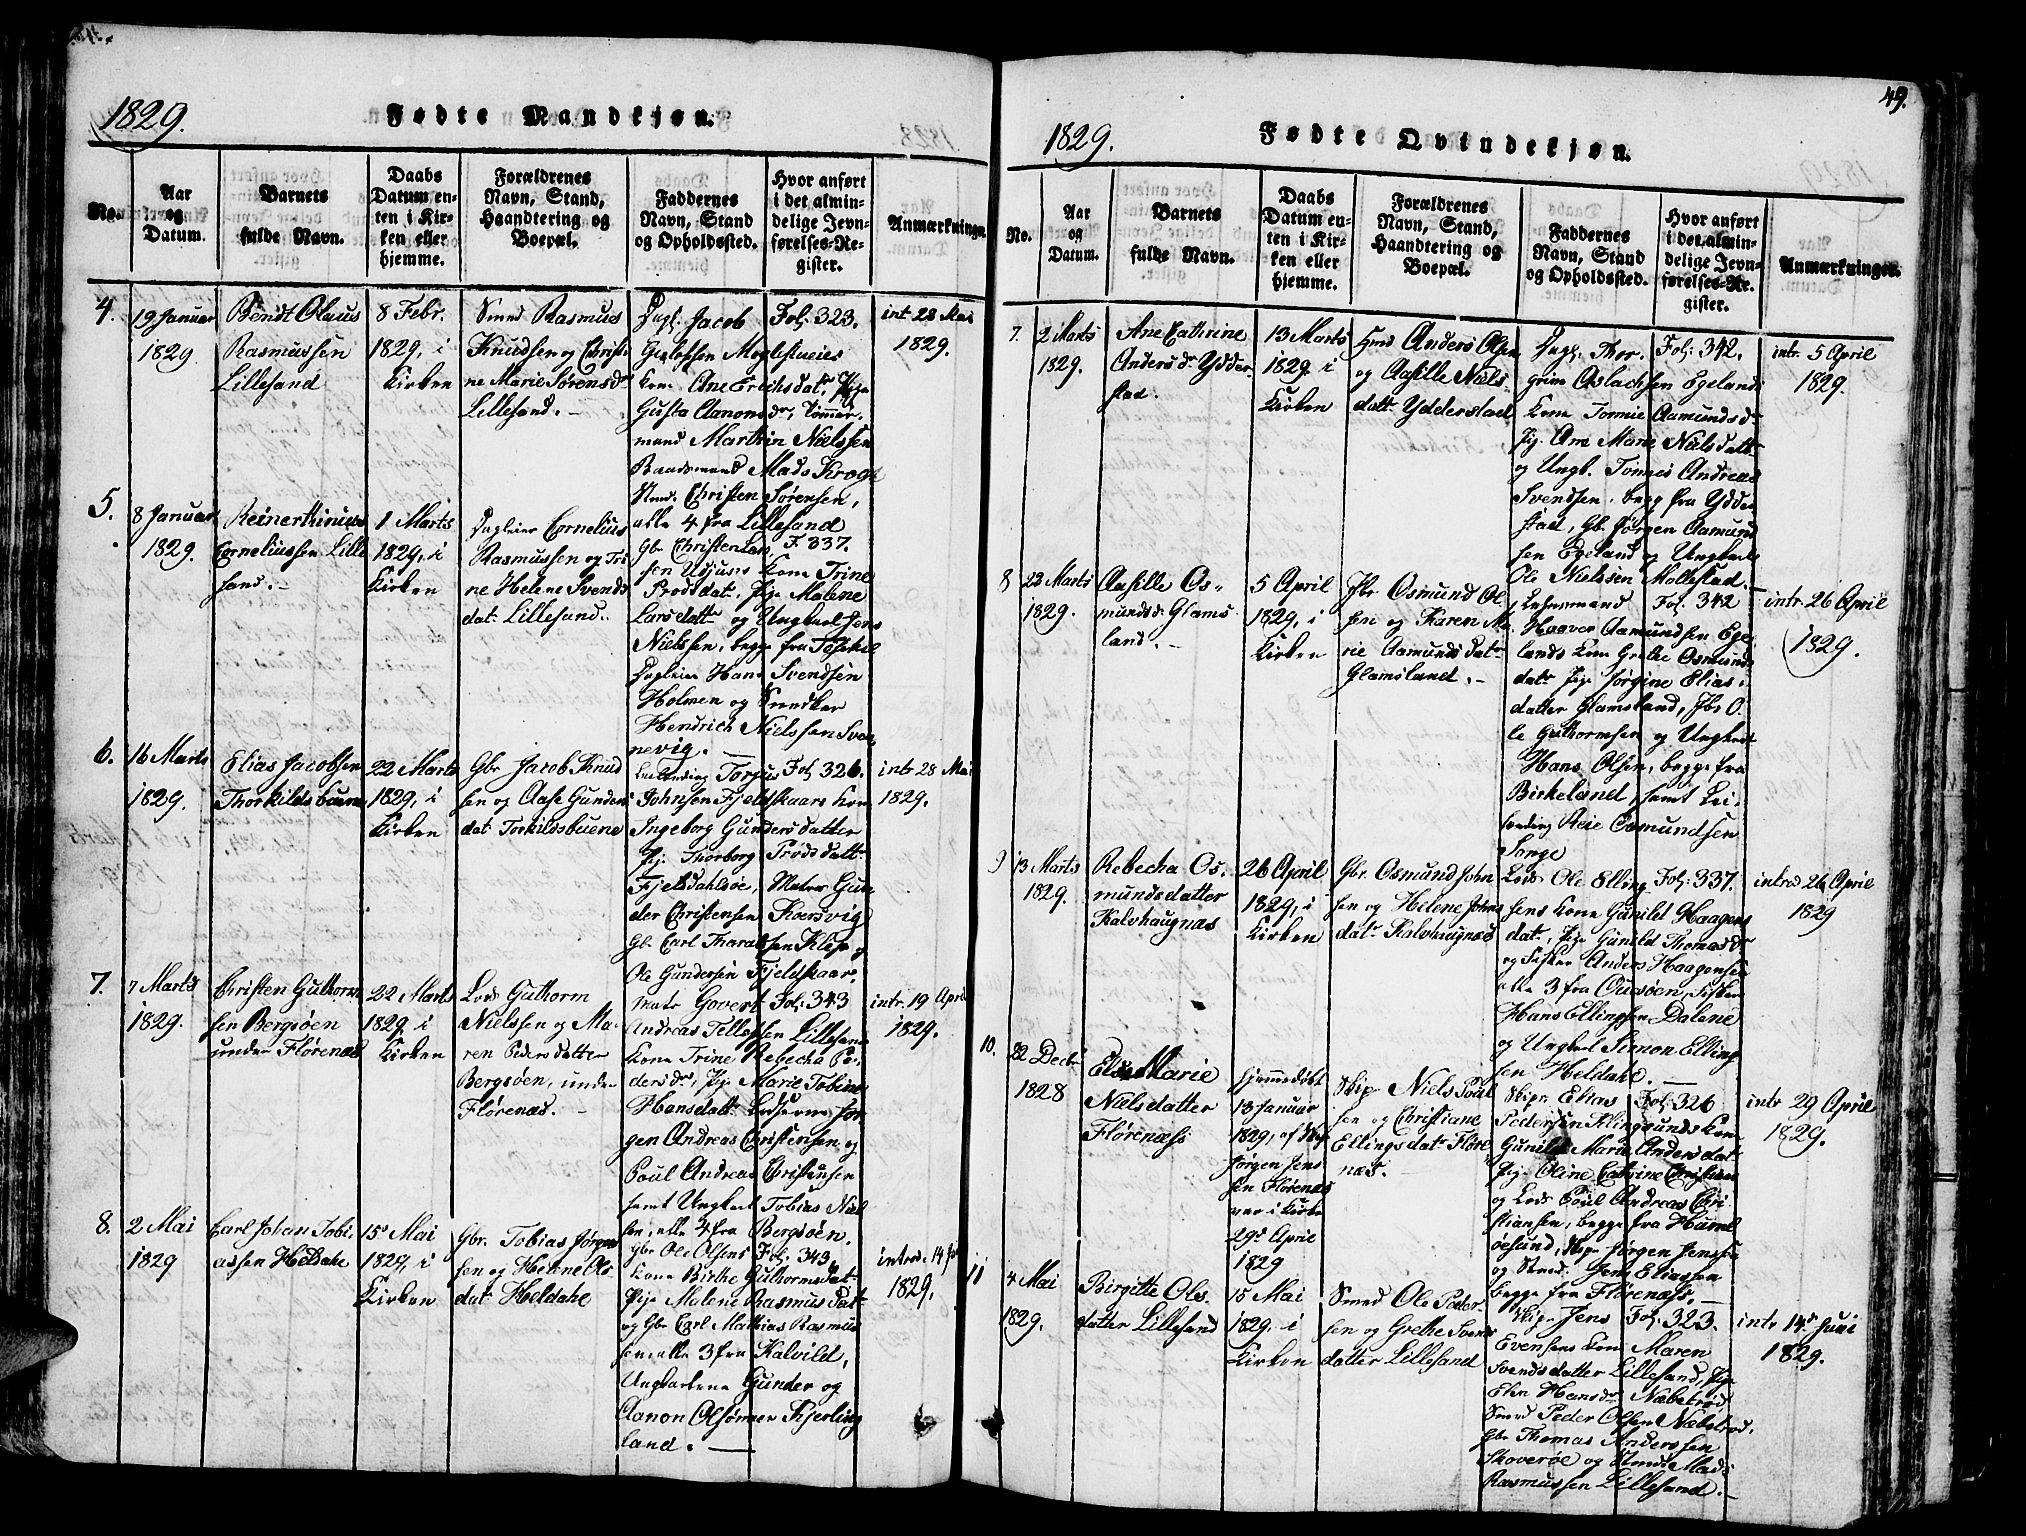 1829.
Fødte Mandkjøn.
No.
Aar
og
Datum.
Barnets
fulde Navn.
Daabs
Datum en-
ten i Kir-
ken eller
hjemme.
Forældrenes
Navn, Stand,
Haandtering og
Boepæl.
Faddernes
Navn, Stand
og Opholdssted.
Hvor anført
i det almin-
delige Jevn-
førelses-Re-
gister.
Anmærkninger.
4.
19 Januar
1829.
Bendt Olaus
Rasmussen
Lillesand
8 Febr.
1829, i
Kirken
Smed Rasmus
Knudsen og Christi
ne Marie Sørensdr
Lillesand.
Jacob
Kone Ane Erichsdatr, Pige
Gusta Aanonsdr, Tømmer
mand Marthin Nielssen
Baadsmand Mads Krog
Smed. Christen Sørensen,
alle 4 fra Lillesand
Fol. 323.
int. 28 Mai
1829.
5.
8 Januar
1829.
Reinert Ninius
Corneliussen Lille
sand.
1 Marts
1829, i
Kirken
Dagleier Cornelius
Rasmussen og Tri
ne Helene Svends
dat. Lillesand.
Gbr Christen Lar
sen Udjuus Kone Trine
Prodsdatr, Pige Malene
Larsdattr og Ungkarl Jens
Nielssen, begge fra
Dagleier Hans Svendsen
Holmen og Snedker
Hendrich Nielssen Sven
nevig.
F. 337.
6.
16 Marts
1829.
Elias Jacobsen
Thorkildsbuene
22 Marts
1829, i
Kirken
Gbr Jacob Knud
sen og Aase Gunders
dat. Torkildsbuene
Torjus
Johnsen Fjeldskaars Kone
Ingeborg Gundersdatter
Pige Thorborg Prodsdattr
Fjelsdahlsøe, Matros Gun
der Christensen Korsvig
Gbr Carl Tharaldsen Klep og
Ole Gundersen Fjeldskaar.
Fol. 326.
intr 28 Mai
1829.
7.
7 Marts
1829.
Christen Guthorm
sen Bergsøen
under Flørenæs
22 Marts
1829, i
Kirken
Lods Guthorm
Nielssen og Ma-
ren Pedersdatter
Bergsøen, under
Flørenæs.
Matr Govert
Andreas Tellefsen Lillesand
Kone Trine Rebecha Pe-
dersdr, Pige Marie Tobine
Hansdatt. Lodserne Jør-
gen Andreas Christensen og
Poul Andreas Christensen
samt Ungkarl Tobias Niel
sen, alle 4 fra Bergsøen.
Fol. 343
intr. 19 April
1829.
8.
2 Mai
1829
Carl Johan Tobi-
assen Heldahe
15de Mai
1829, i
Kirken
Gbr. Tobias Jørgen
sen og Helene Ols
dat. Heldahe
Gbr Ole Olsens
Kone Birthe Guthormsdat-
Pige Malene Rasmusdat-
og Gbr Carl Mathias Rasmus
sen alle 3 fra Kalvild,
Ungkarlene Gunder og
Aanon Olsønner Kjerling
land.
Fol. 343.
introd. 14 Ju
1829.
49.
1829.
Fødte Qvindekjøn.
No.
Aar
og
Datum.
Barnets
fulde Navn.
Daabs
Datum en-
ten i Kir-
ken eller
hjemme.
Forældrenes
Navn, Stand,
Haandtering og
Boepæl.
Faddernes
Navn, Stand
og Opholdssted.
Hvor anført
i det almin-
delige Jevn-
førelses-Re-
gister.
Anmærkninger.
7.
2 Marts
1829.
Ane Cathrine
Andersdr Ydder-
stad.
13 Marts
1829. i
Kirken
Anders
og Aasille Niels-
datr Ydderstad
Thor-
grim Aslachsen Egelands
Kone Tomine Aamundsdr
Pige Ane Marie Nielsdattr
og Ungk. Tomes Andreas
Svendsen, begge fra Ydder
stad, Gbr Jørgen Aamund
sen Egeland og Ungkarl
Ole Nielssen Møllestad.
Fol. 342.
intr. 5 April
1829.
8
23 Marts
1829.
Aasille Os-
mundsdr Glams-
land.
5 April
1829, i
Kirken
Gbr Osmund Ol-
sen og Karen Ma-
rie Aamundsdatr
Glamsland.
Lehnsmand
Haaver Aamundsen Ege
lands Kone Grethe Osmunds
datr Pige Jørgine Elias-
datter Glamsland, Gbr O-
le Guthormsen og Ungkarl
Hans Olsen, begge fra
Birkeland, samt Lei-
lending Reie Osmundsen
Songe
Fol. 342
intr. 26 April
1829.
9
13 Marts
1829.
Rebecha Os-
mundsdatter
Kalvhaugnæs
26 April
1829, i
Kirken
Gbr. Osmund John
sen og Helene Johns
datr Kalvhaugnæs
Lods Ole Elling
sens Kone Gunild Haagens
dat., Pige Gunild Thomasdr
og Fisker Anders Haagensen
alle 3 fra Fisker
Hans Ellingsen Dalene
og Ungkarl Simon Elling
sen Heldahe.
Fol. 337.
introd 26 April
1829
10.
22 Decbr
1828
Else Marie
Nielsdatter
Flørenæss
hjemmedøbt
13 Januar
1829, af Skip
Jørgen Jens
sen Flørenæs
var i Kirke
29de April
1829
Skipr Niels Poul
sen og Christiane
Ellingsdat. Fløre
næs.
Skipr. Elias
Pedersen Klingsunds Kone
Gunild Marie Andersdat.
Pige Oline Catrine Christian
og Lods Poul Andreas Chri
stiansen, begge fra Humel
øesund, Skipr Jørgen Jenssen
og Smed. Jens Eliassen
begge fra Flørenæss.
Fol. 326
intr 29 April
1829.
11
4 Mai
1829.
Birgitte Ols-
datter Lillesand
15 Mai
1829. i
Kirken
Smed Ole Peder-
sen og Grethe Svends
datter Lillesand
Skipr Jens
Evensens Kone Maren
Svendsdatter Lillesand, Pige
Elen Hansdr Næbstrød
Smed Peder Olsen Næbstrød,
Gbr Thomas Anderssen
Skoverøe og Smed: Mads
Rasmussen Lillesand.
Fol. 323.
intr 14de Juni
1829.